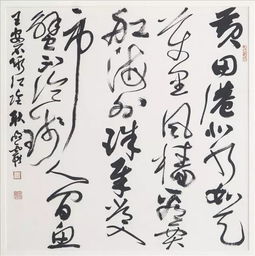 黄田港北水如天
万里风樯看贾
船海外珠犀常入
市人间鱼
蟹不论钱
王安石咏江阴